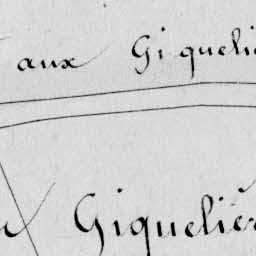 aux Giqueli
x Giqueliè